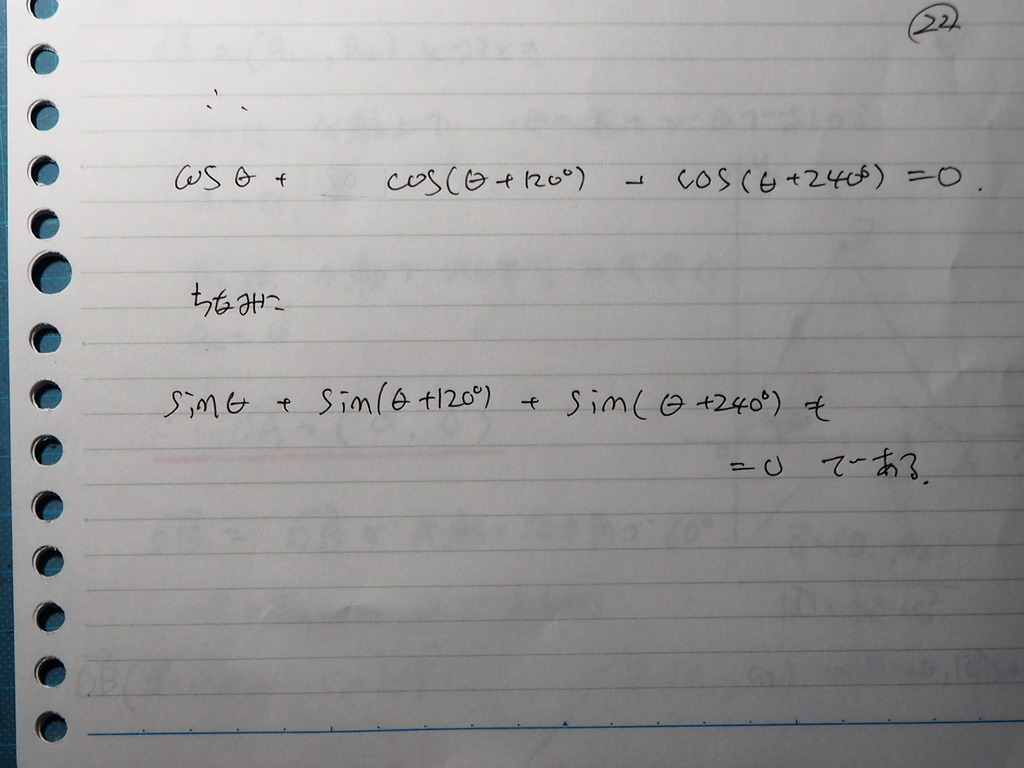 22
∴
cosθ + cos(θ+120°) - cos(θ+240°) = 0.
ちなみに
sinθ + sin(θ+120°) + sin(θ+240°) も
= 0 である.